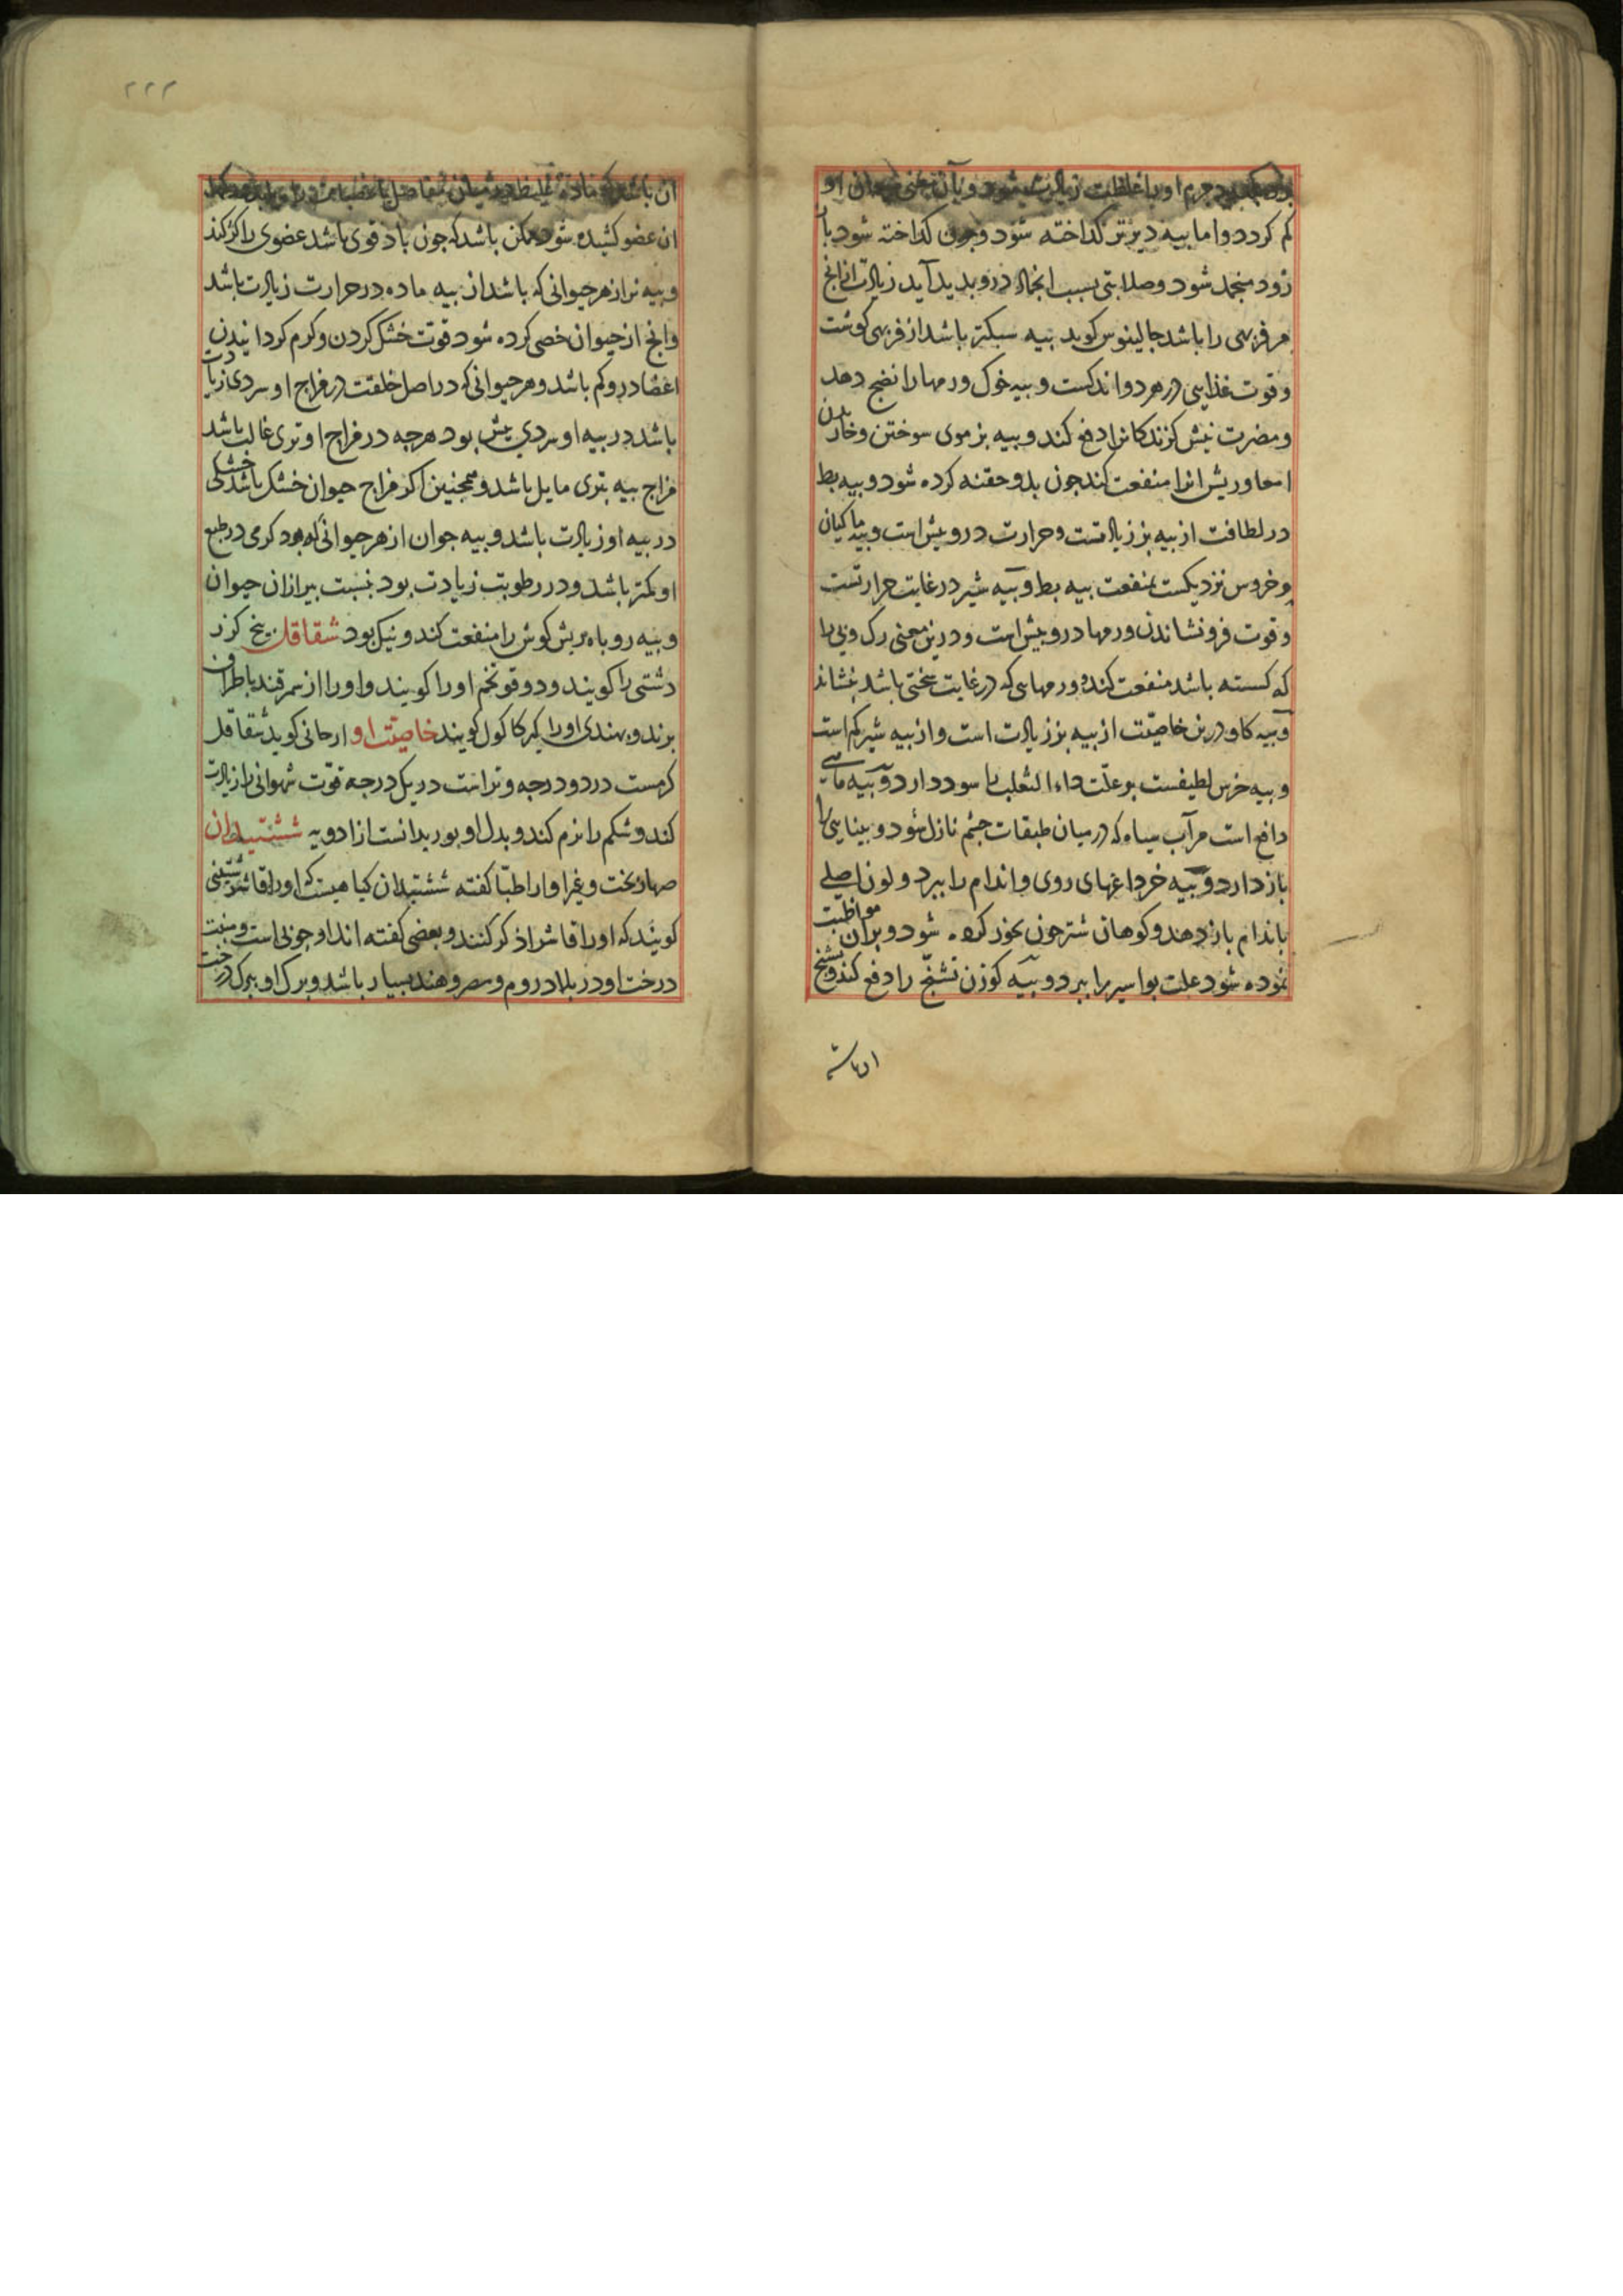 جرم او را غلظت زیادت میشود و بآن معنی او
کم کردد و اما بیه دیرتر کداخته شود و چون کداخته شود باز
زود منجمد شود و صلابتی بسبب انجماد درو بدید آید زیادت از انج
مر فربهی را باشد جالینوس کوید بیه سبکتر باشد از فربهی کوشت
و قوت غذایی در هر دو اندکست و بیه خوک ورمها را نضج دهد
و مضرت نیش کزندکانرا دفع کند و بیه بز موی سوختن و خاریدن
امعا و ریش انرا منفعت کند جون بدو حقنه کرده شود و بیه بط
در لطافت از بیه بز زیادتست و حرارت درو بیش است و بیه ماکیان
و خروس نزدیکست بمنفعت بیه بط و بیه شیر در غایت حرارتست
و قوت فرو نشاندن ورمها درو بیش است و درین معنی رک و پی را
که کسسته باشد منفعت کند و ورمهایی که در غایت سختی باشد بنشاند
و بیه کاو درین خاصیت از بیه بز زیادت است و از بیه شیر کم است
و بیه خرس لطیفست بر علت داء الثعلب را سود دارد و بیه ماهی
دافع است مر آب سیاه که در میان طبقات جشم نازل شود و بینایی را
باز دارد و بیه خر داغهای روی و اندام را ببرد و لون اصلی
باندام باز دهد و کوهان شتر جون بخور کرده شود و بر آن مواظبت
نموده شود علت بواسیر را ببرد و بیه کوزن تشنج را دفع کند و تشنج
ان باشد
۲۲۲
ان باشد که ماده غلیظ در میان مفاصل یا اعصاب در اید
ان عضو کشیده شود و ممکن باشد که جون باد قوی باشد عضوی را کژ کند
و بیه نر از هر حیوانی که باشد از بیه ماده در حرارت زیادت باشد
و انج از حیوان خصی کرده شود قوت خشک کردن و کرم کردانیدن
اعضا درو کم باشد و هر حیوانی که در اصل خلقت در مزاج او سردی زیادت
باشد در بیه او سردی بیش بود هرجه در مزاج او تری غالب باشد
مزاج بیه بتری مایل باشد و همجنین اکر مزاج حیوان خشک باشد خشکی
در بیه او زیادت باشد و بیه جوان از هر حیوانی که بود کرمی در طبع
او کمتر باشد و در رطوبت زیادت بود بنسبت بیر از ان حیوان
و بیه روباه ریش کوش را منفعت کند و نیک بود شقاقل بیخ کزر
دشتی را کویند و دوقو تخم او را کویند و او را از سمرقند باطراف
برند و بهندی او را کیر کاکول کویند خاصیت او ارجانی کوید شقاقل
کرمست در دو درجه و تر است در یک درجه قوت شهوانی را زیادت
کند و شکم را نرم کند و بدل او بوزیدانست از ادویه ششتبدان
صهاربخت و غیر او از اطبا کفته ششتبدان کیاهیست که او را قاشرشتین
کویند که او را قاشرا ذکر کنند و بعضی کفته اند او جوبی است و منبت
درخت او در بلاد روم و مصر و هند بسیار باشد و برک او ببرک درخت